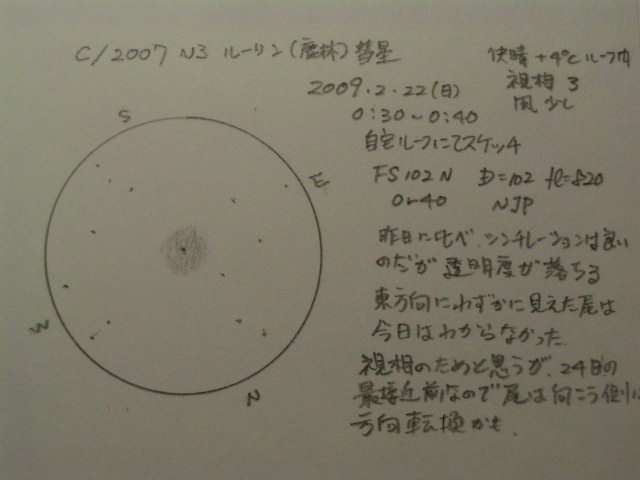 C/2007 N3 ルーリン(鹿林)彗星
快晴 +4℃ ルーフ内
視相 3
風 少し
2009.2.22(日)
0:30~0:40
自宅ルーフにてスケッチ
FS102N D=102 fl=820
Or40 NJP
S
E
W
N
昨日に比べ、シンチレーションは良い
のだが 透明度が落ちる
東方向にわずかに見えた尾は
今日はわからなかった
視相のためと思うが、24日の
最接近前なので尾は向こう側に
方向転換かも、